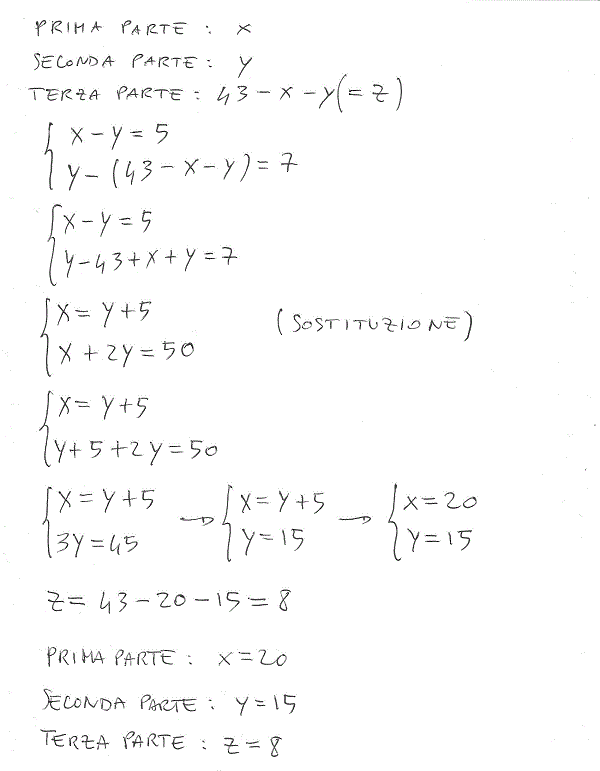 PRIMA PARTE : x
SECONDA PARTE : y
TERZA PARTE : 43 - x - y (= z)
{ x - y = 5
y - (43 - x - y) = 7
{ x - y = 5
y - 43 + x + y = 7
{ x = y + 5 (SOSTITUZIONE)
x + 2y = 50
{ x = y + 5
y + 5 + 2y = 50
{ x = y + 5 → { x = y + 5 → { x = 20
3y = 45 y = 15 y = 15
z = 43 - 20 - 15 = 8
PRIMA PARTE : x = 20
SECONDA PARTE : y = 15
TERZA PARTE : z = 8